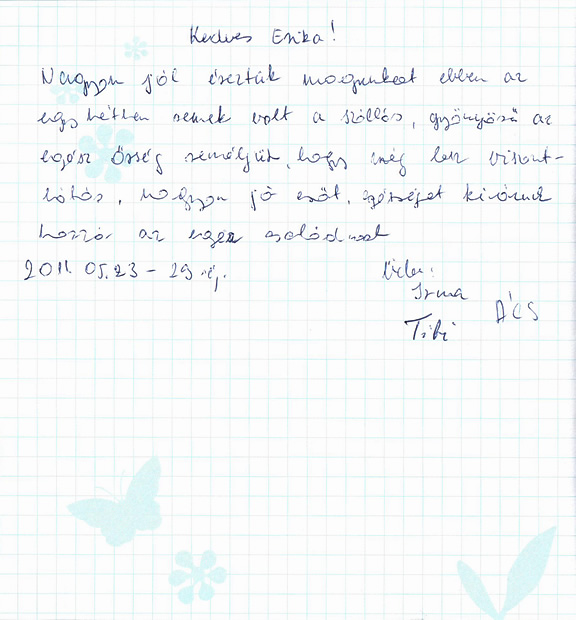 Kedves Erika!
Nagyon jól éreztük magunkat ebben az
egy hétben remek volt a szállás, gyönyörű az
egész Őrség reméljük, hogy még lesz viszont-
látás, nagyon jó erőt, egészséget kívánunk
hozzá az egész családnak
2011. 05.23 - 29-ig.
Üdv:
Irma
Tibi ÁCS